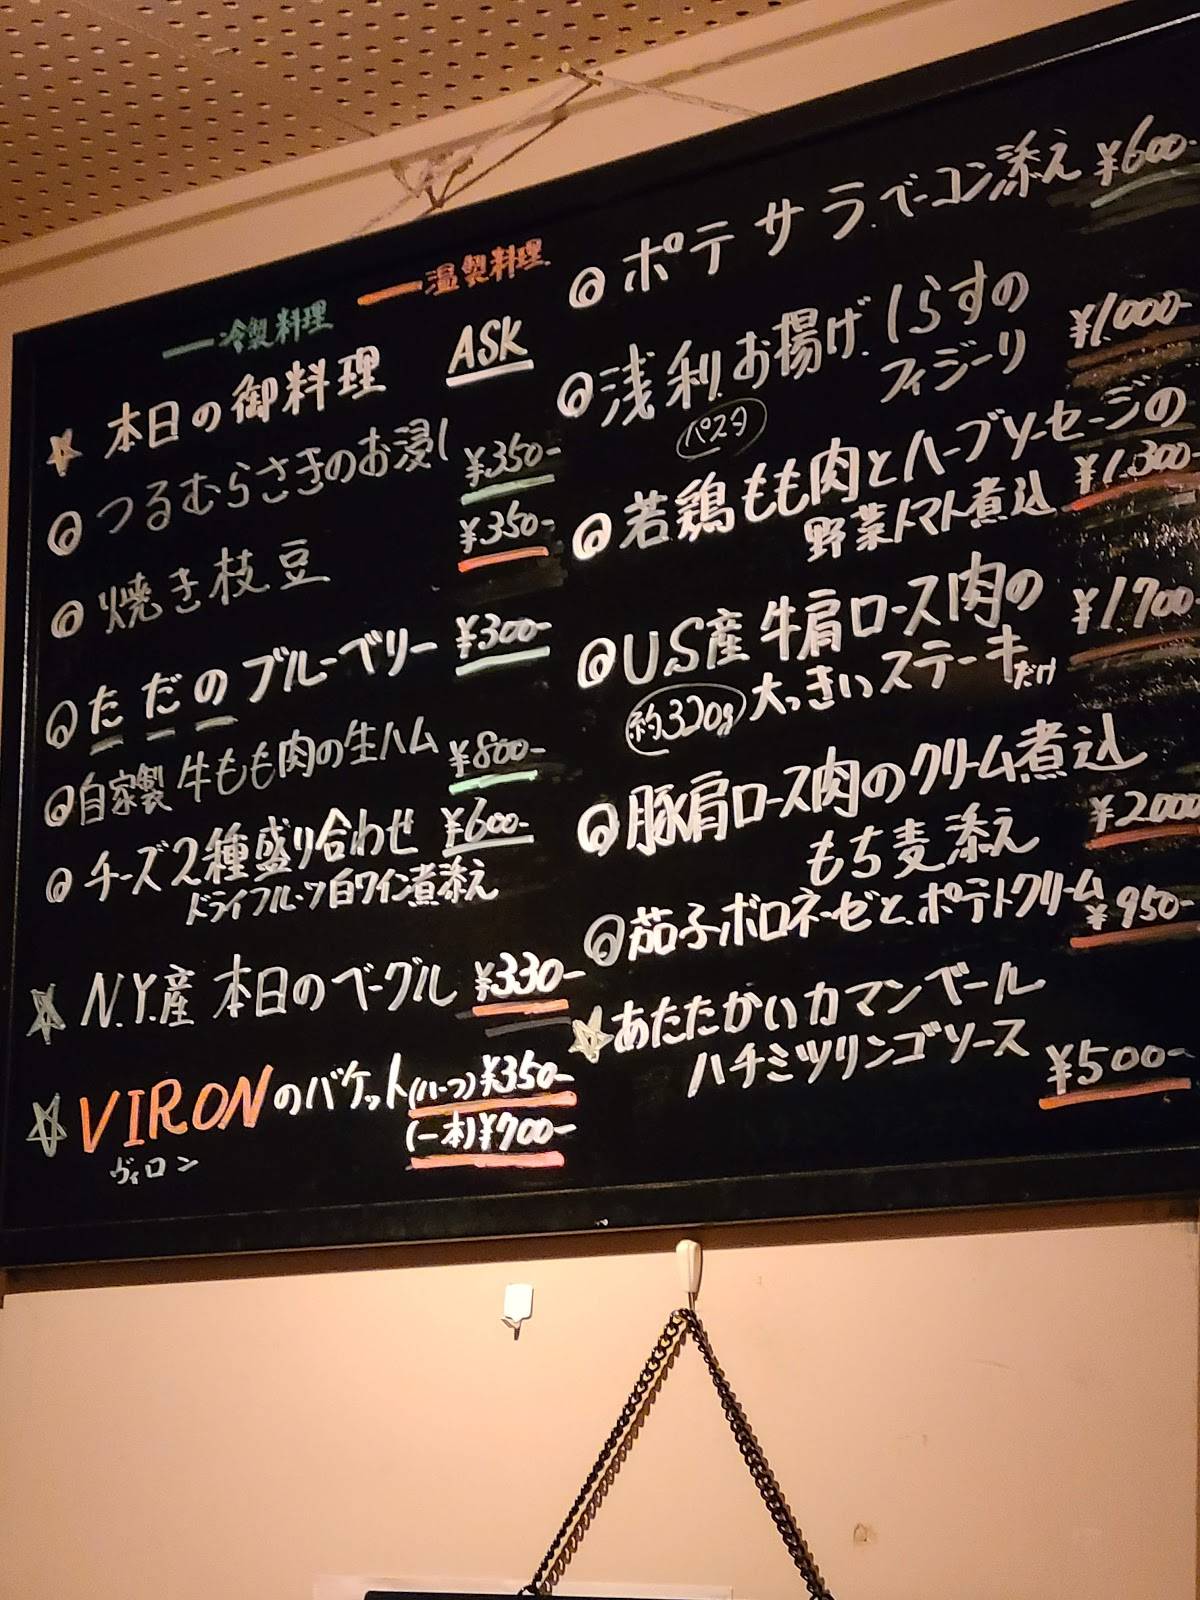 冷製料理
温製料理
本日の御料理 ASK
つるむらさきのお浸し ¥350-
焼き枝豆 ¥350-
ただのブルーベリー ¥300-
自家製牛もも肉の生ハム ¥800-
チーズ2種盛り合わせ ¥600-
ドライフルーツ白ワイン煮添え
N.Y.産 本日のベーグル ¥330-
VIRONのバケット(ハーフ)¥350-
(一本)¥700-
ヴィロン
ポテサラ ベーコン添え ¥600-
浅利 お揚げ しらすの
フィジーリ ¥1.000-
パスタ
若鶏もも肉とハーブソーセージの
野菜トマト煮込 ¥1.300-
US産 牛肩ロース肉の
約320g 大っきいステーキだけ ¥1.700
豚肩ロース肉のクリーム煮込
もち麦添え ¥2000
茄子ボロネーゼとポテトクリーム ¥950-
あたたかいカマンベール
ハチミツリンゴソース
¥500-